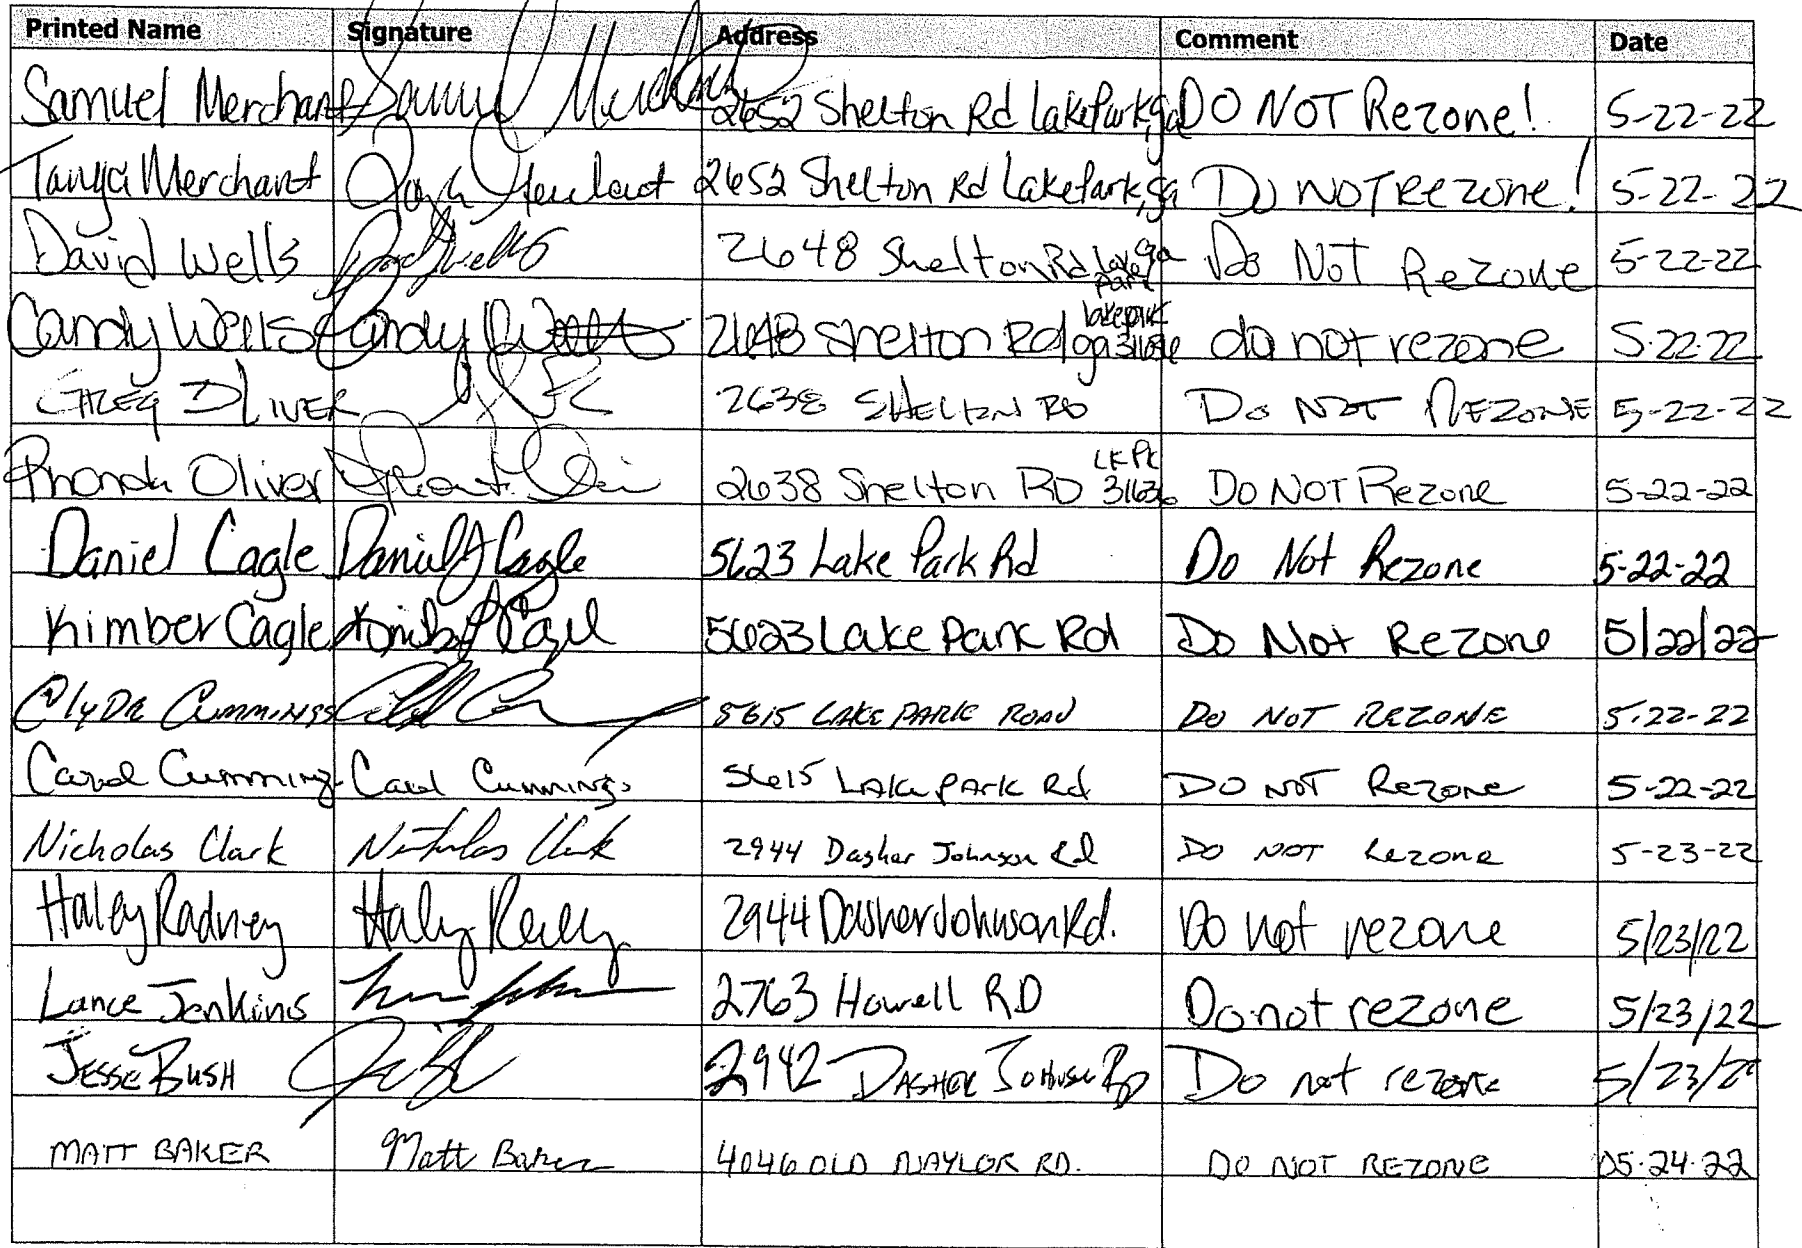 Printed Name Signature Address Comment Date
Samuel Merchant Samuel Merchant 2652 Shelton Rd Lake Park, ga DO NOT Rezone! 5-22-22
Tanya Merchant Tanya Merchant 2652 Shelton Rd Lake Park, ga Do NOT Rezone! 5-22-22
David Wells David Wells 2648 Shelton Rd Lake Park ga Do Not Rezone 5-22-22
Candy Wells Candy Wells 2648 Shelton Rd lake park ga 31636 do not rezone 5-22-22
GREG OLIVER 2638 SHELTON RD DO NOT REZONE 5-22-22
Rhonda Oliver 2638 Shelton RD LK PK 31636 DO NOT Rezone 5-22-22
Daniel Cagle Daniel J Cagle 5623 Lake Park Rd Do Not Rezone 5-22-22
Kimber Cagle Kimber Cagle 5623 Lake Park Rd Do Not Rezone 5/22/22
Clyde Cummings 5615 LAKE PARK ROAD DO NOT REZONE 5-22-22
Carol Cummings Carol Cummings 5615 LAKE PARK Rd DO NOT Rezone 5-22-22
Nicholas Clark Nicholas Clark 2944 Dasher Johnson Rd DO NOT Rezone 5-23-22
Haley Radney Haley 2944 Dasher Johnson Rd. Do not rezone 5/23/22
Lance Jenkins 2763 Howell RD Do not rezone 5/23/22
JESSE BUSH 2942 DASHER JOHNSON RD Do not rezone 5/23/22
MATT BAKER Matt Baker 4046 OLD NAYLOR RD. DO NOT REZONE 05-24-22